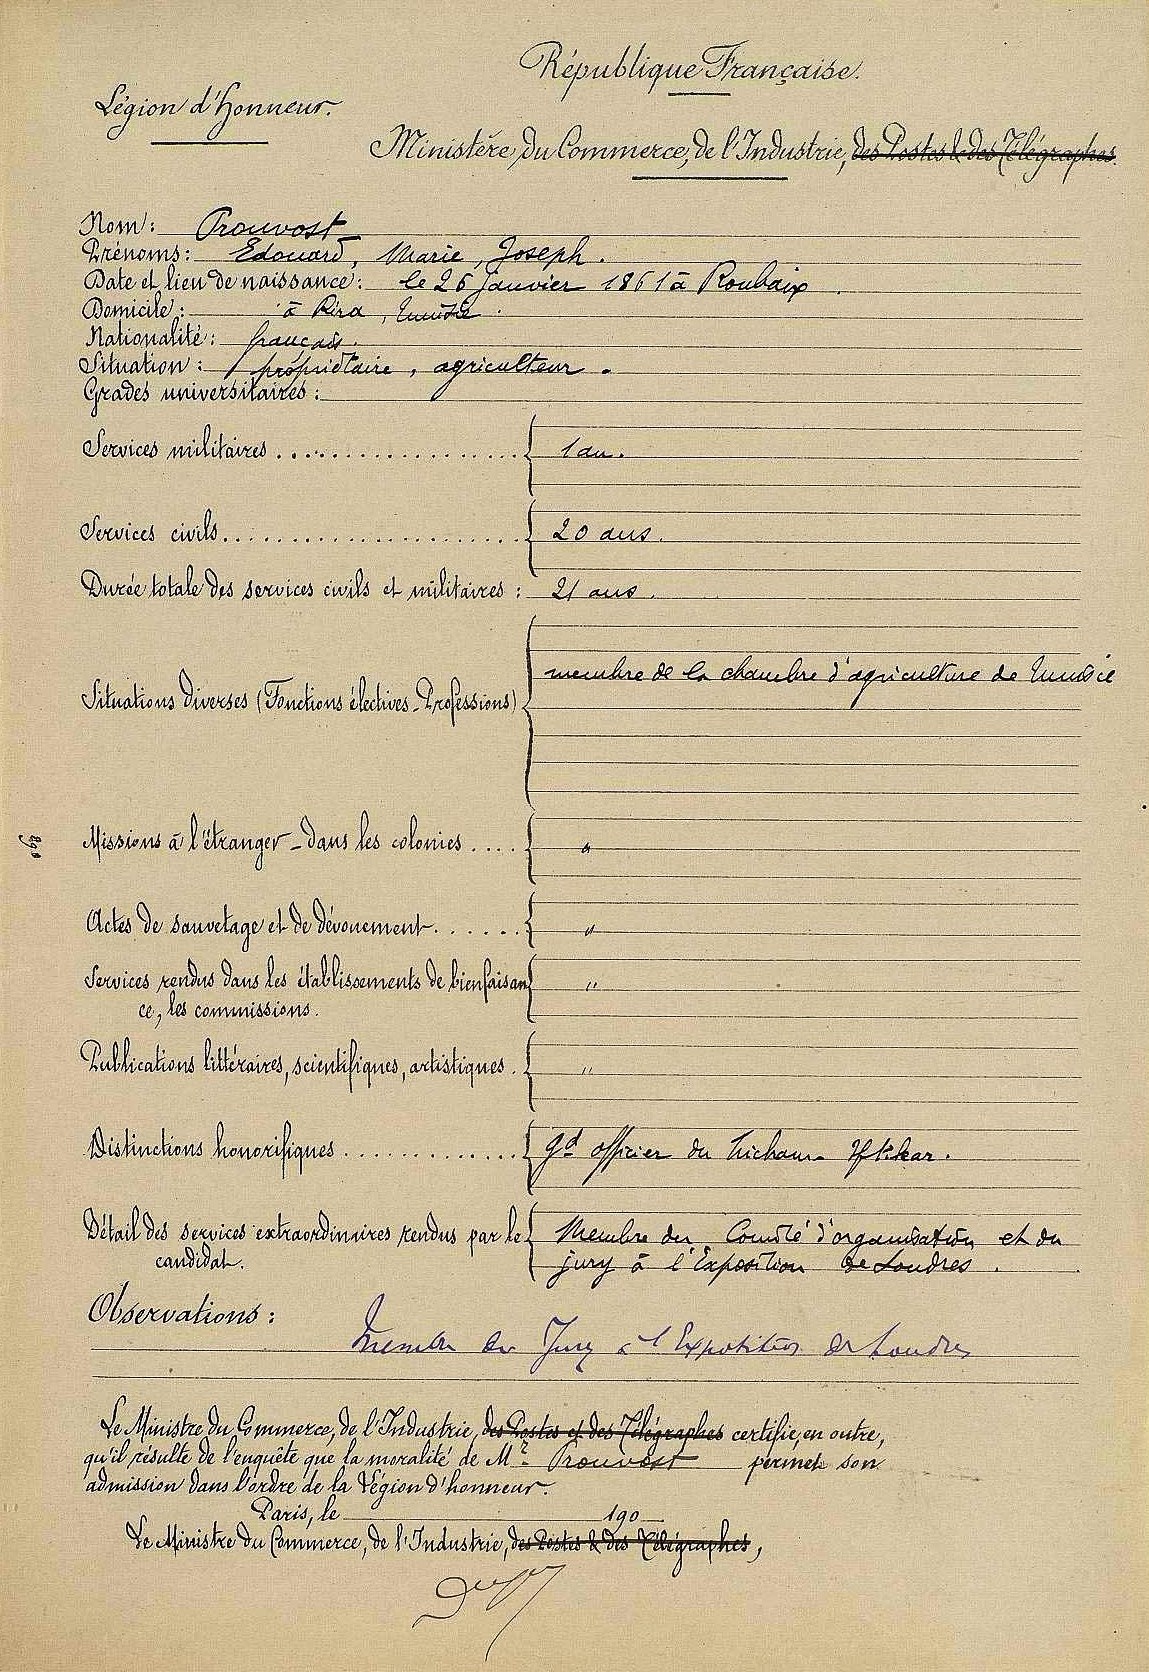 République Française.
Légion d'Honneur.
Ministère du Commerce, de l'Industrie, des Postes & des Télégraphes.
Nom : Prouvost
Prénoms : Edouard, Marie, Joseph.
Date et lieu de naissance : le 26 janvier 1861 à Roubaix.
Domicile : à , Tunisie.
Nationalité : français.
Situation : propriétaire, agriculteur.
Grades universitaires :
Services militaires 1 an.
Services civils 20 ans.
Durée totale des services civils et militaires : 21 ans.
membre de la chambre d'agriculture de Tunisie
Situations diverses (Fonctions électives - Professions)
Missions à l'étranger - dans les colonies "
Actes de sauvetage et de dévouement "
Services rendus dans les établissements de bienfaisan "
ce, les commissions.
Publications littéraires, scientifiques, artistiques. "
Distinctions honorifiques gd officier du Nicham Iftikar.
Détail des services extraordinaires rendus par le Membre du Comité d'organisation et du
candidat. jury à l'Exposition de Londres.
Observations :
Membre du Jury à l'Exposition de Londres
Le Ministre du Commerce, de l'Industrie, des Postes et des Télégraphes certifie, en outre,
qu'il résulte de l'enquête que la moralité de Mr. Prouvost permet son
admission dans l'ordre de la Légion d'honneur.
Paris, le 190
Le Ministre du Commerce, de l'Industrie, des Postes & des Télégraphes,